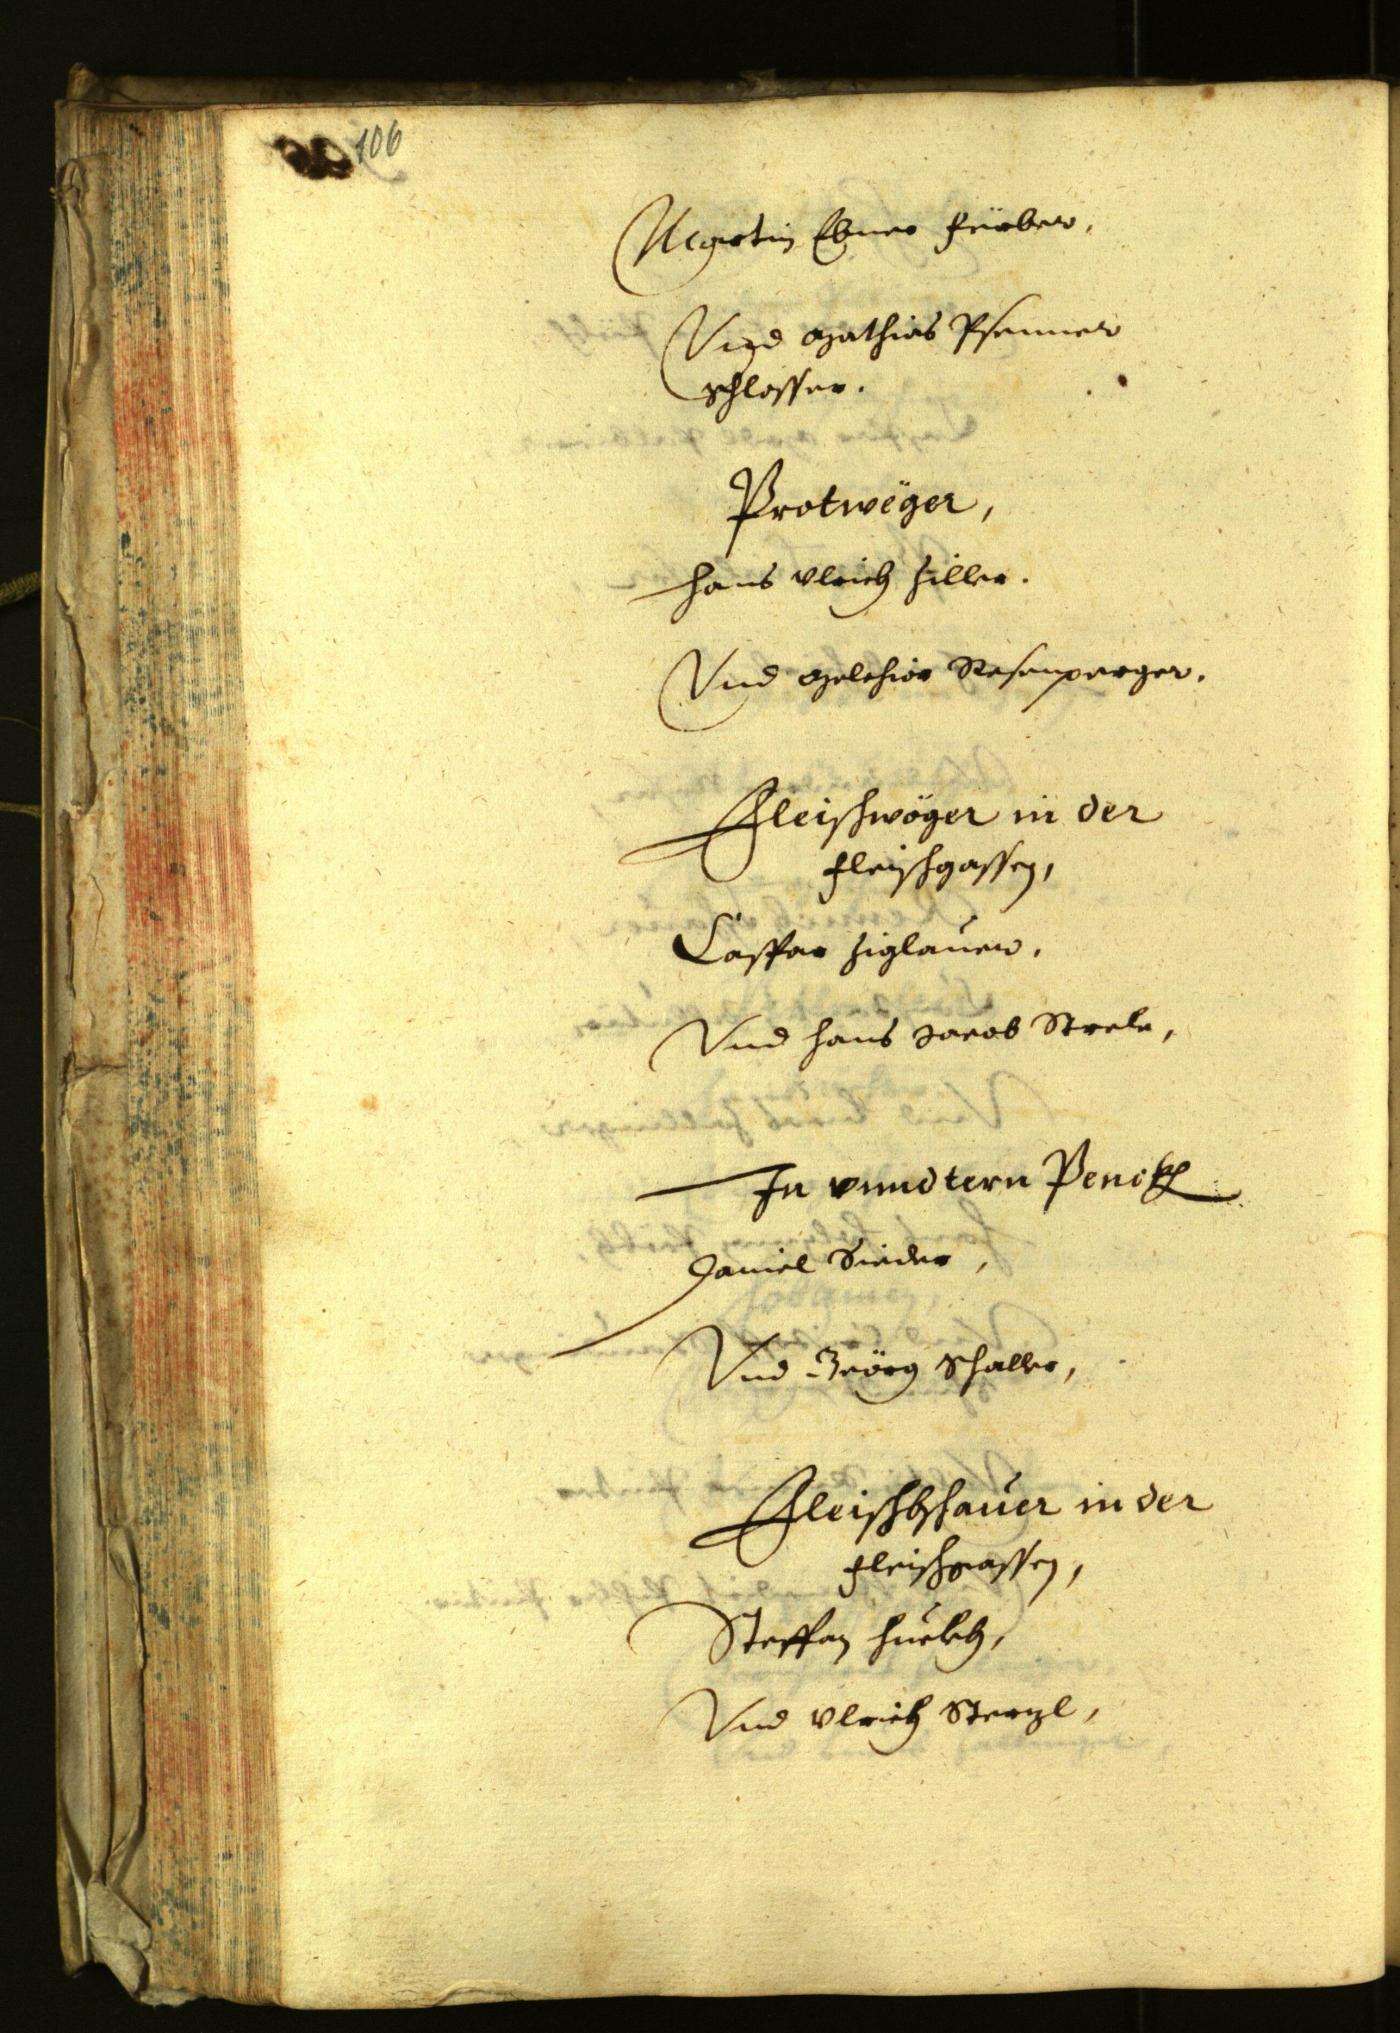 106
Martin Ebner Färber,
Vnd Mathias Pfenner
Schlosser.
Protweger,
Hans Vlrich Hiller.
Vnd Melchior Resenperger.
Fleischwöger in der
Fleischgassen,
Caspar Ziglauer.
Vnd Hans Jacob Strele,
In vnndtern Penckh
Daniel Sieder,
Vnd Geörg Schaller,
Fleischbschauer in der
Fleischgassen,
Steffan Huebch,
Vnd Vlrich Sterzl,